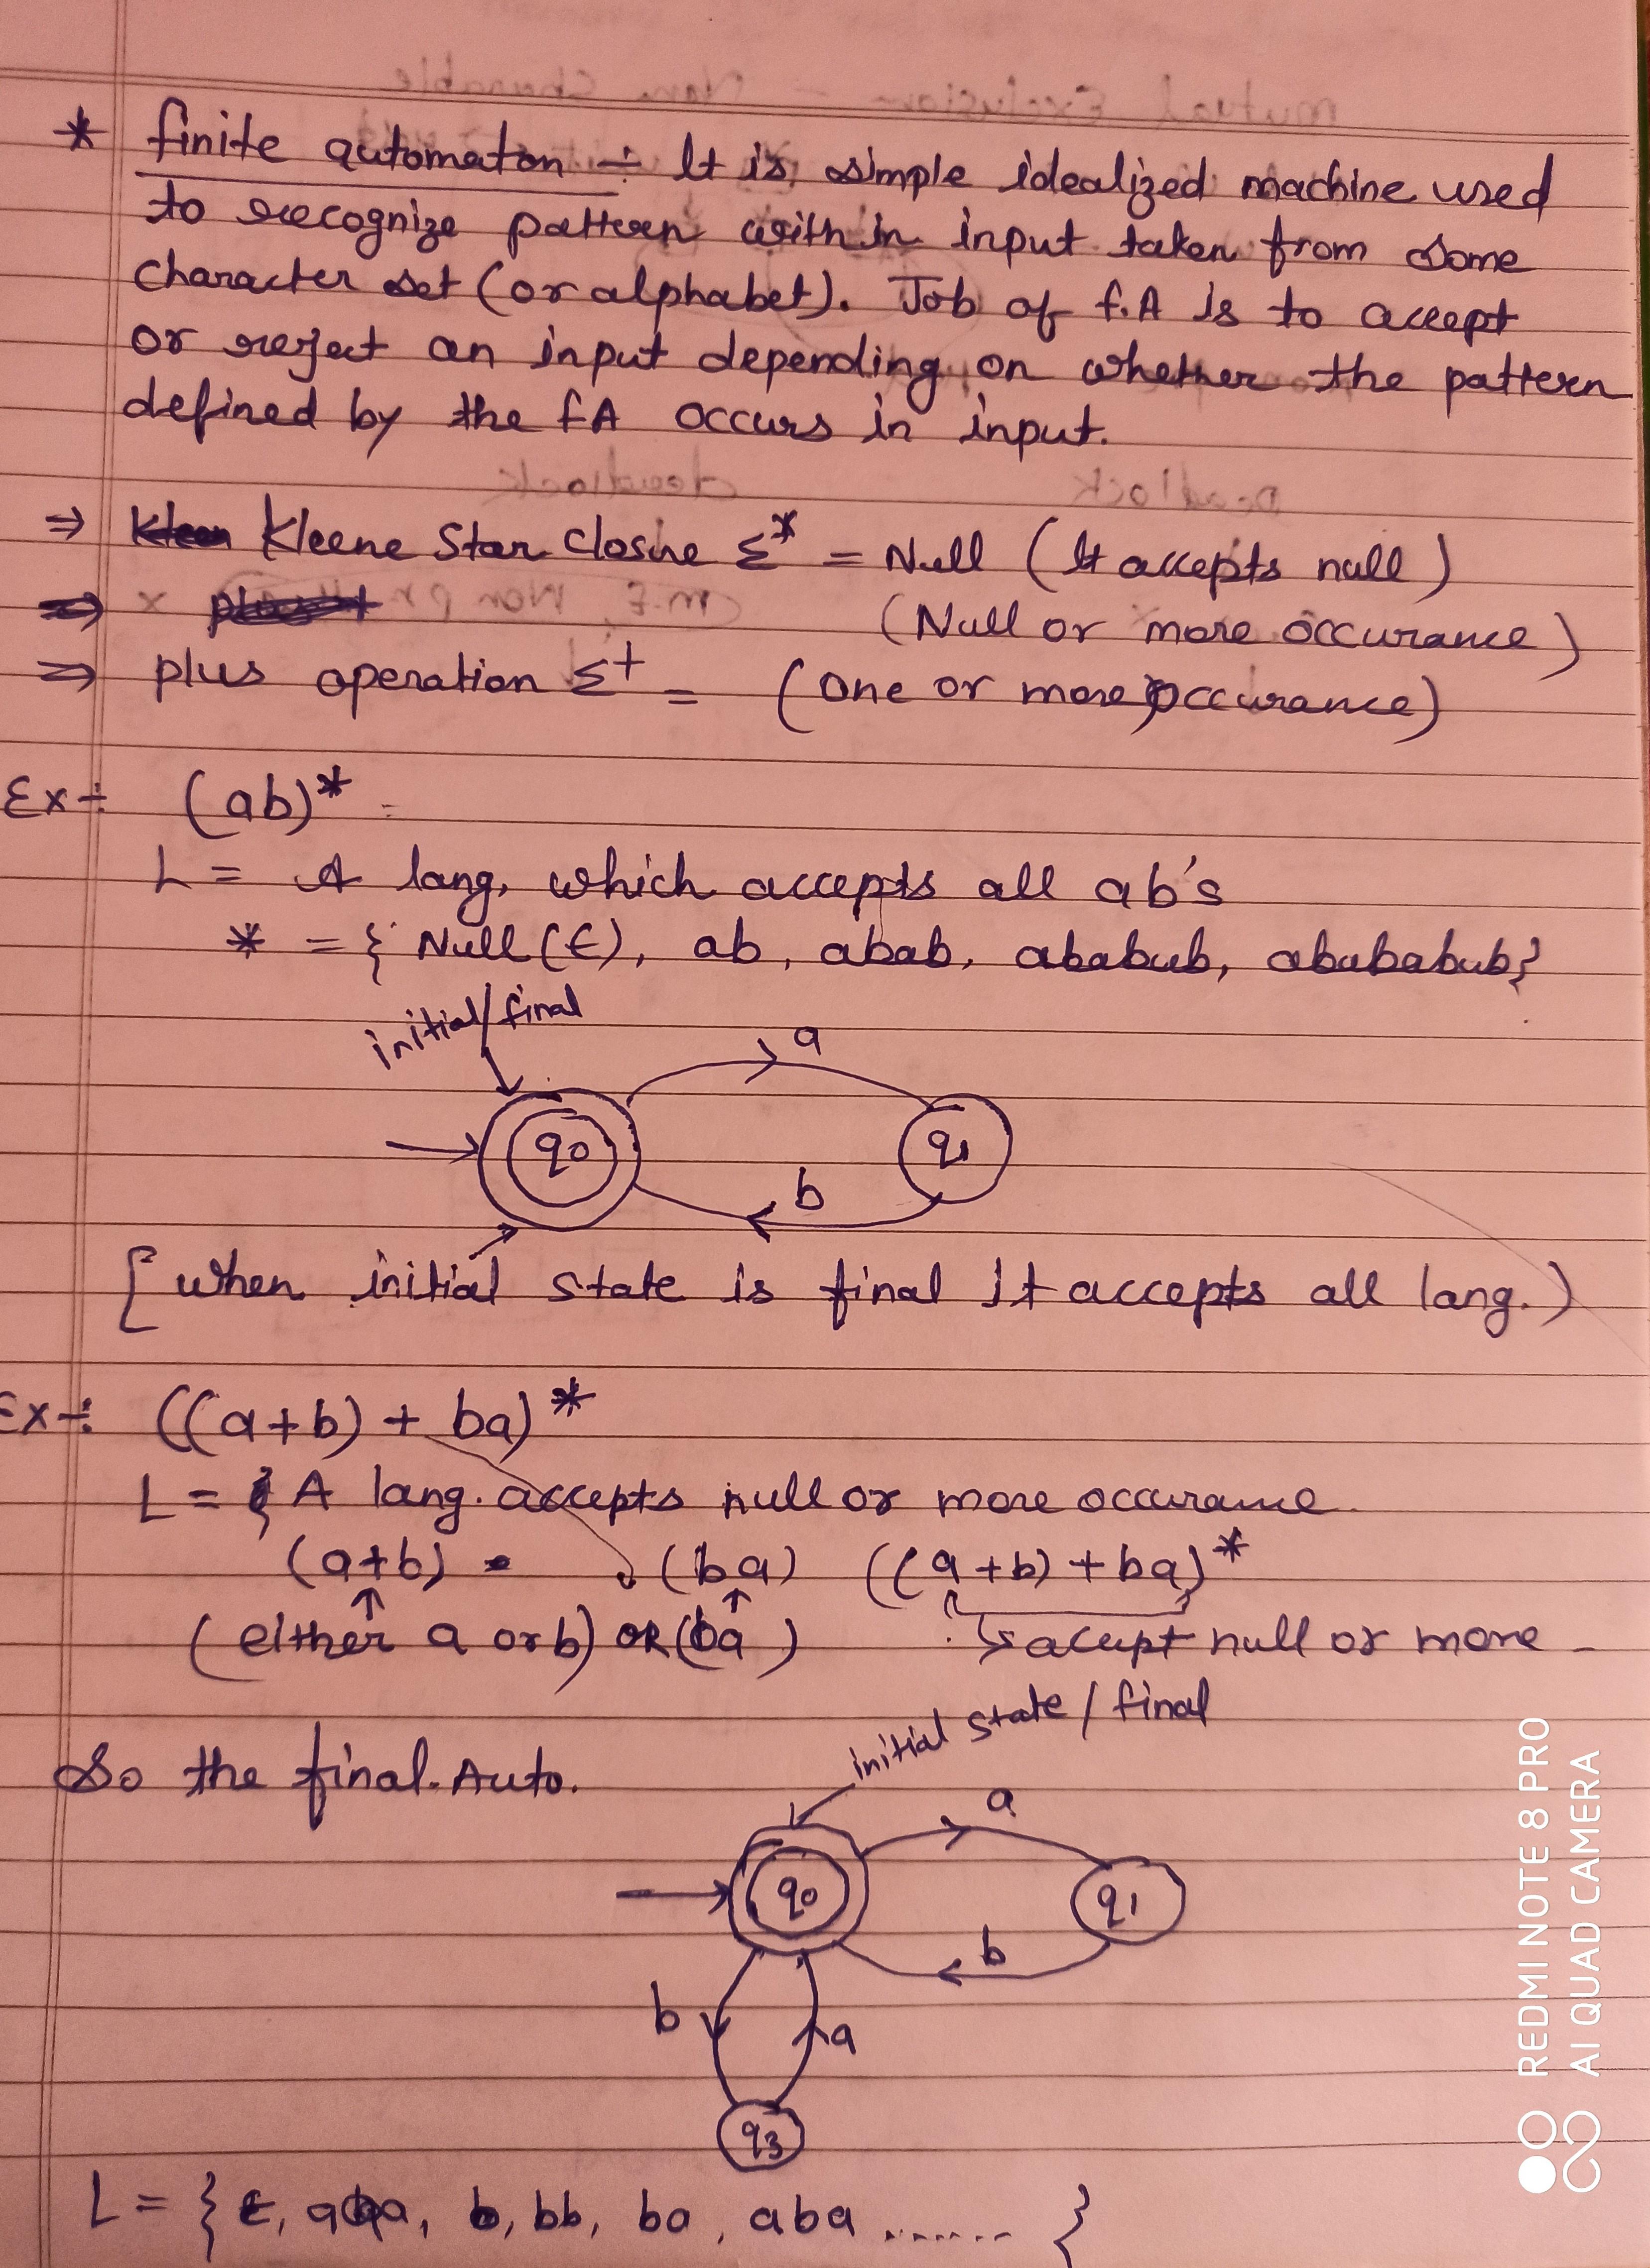 * finite automaton ÷ It is simple idealized machine used
to recognize pattern with in input taken from some
character set (or alphabet). Job of f.A is to accept
or reject an input depending on whether the pattern
defined by the fA occurs in input.
⇒ Kleene Star Closure Σ* = Null (It accepts null)
(Null or more occurance)
⇒ plus operation Σ+ = (one or more occurance)
Ex÷ (ab)* =
L = A lang, which accepts all ab's
* = { Null(ε), ab, abab, ababab, abababab}
initial/final
a
q0 q1
b
[when initial state is final it accepts all lang.)
Ex÷ ((a+b) + ba)*
L = { A lang. accepts null or more occurance
(a+b) (ba) ((a+b) + ba)*
(either a or b) OR (ba) ↳ accept null or more
initial state / final
So the final Auto.
a
q0 q1
b
b a
q3
L = { ε, b, bb, ba, aba ....... }
REDMI NOTE 8 PRO
AI QUAD CAMERA